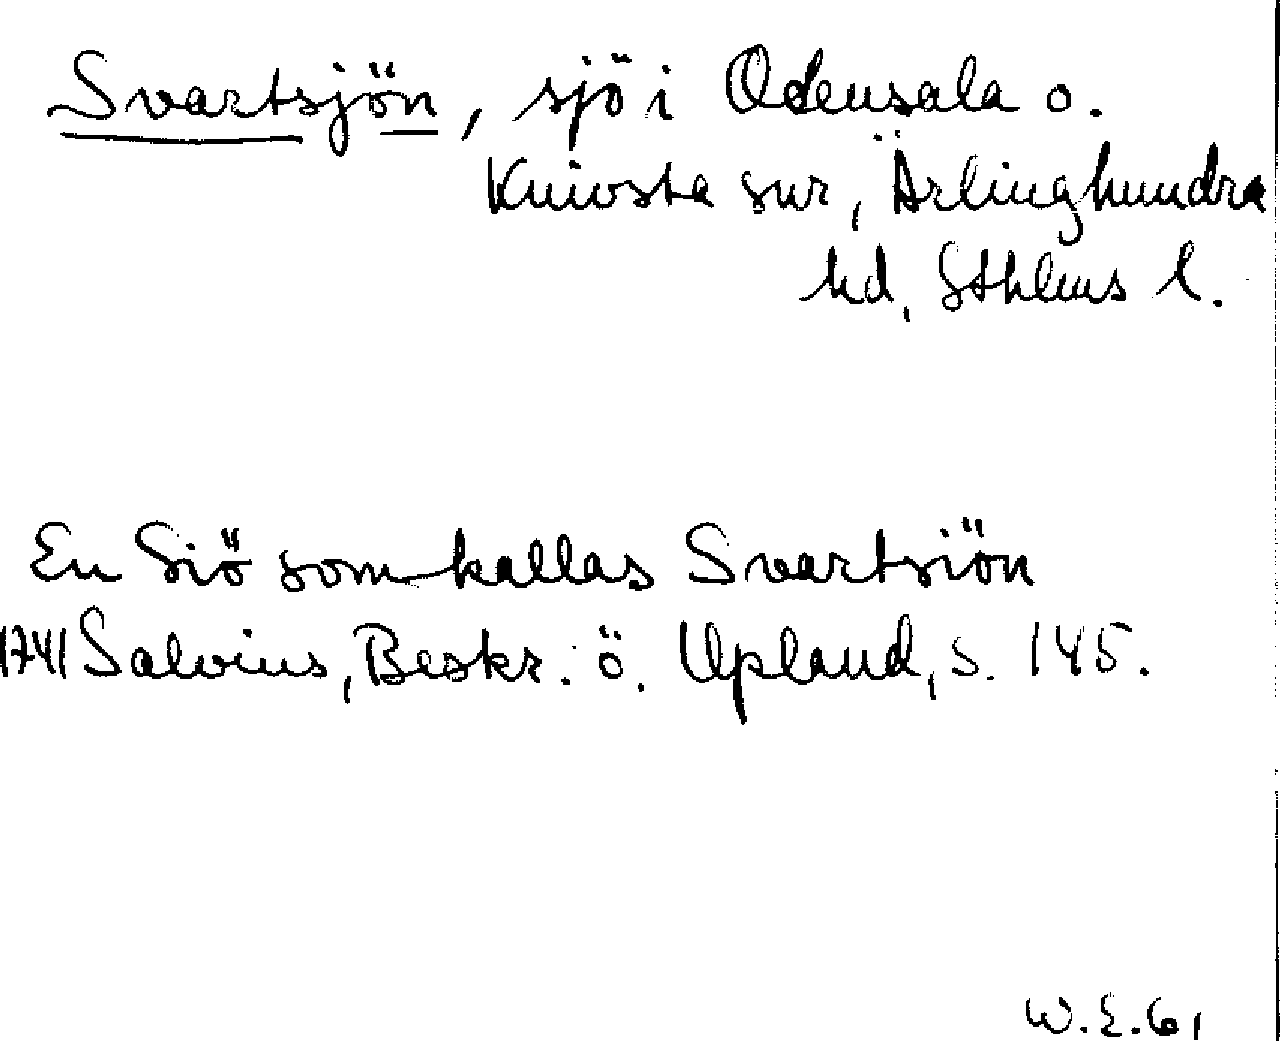 Svartsjön, sjö i Odensala o.
Knivsta snr, Ärlinghundra
hd, Sthlms l.
En Siö som kallas Svartsiön
1741 Salvius, Beskr. ö. Upland, s. 145.
W.E.61